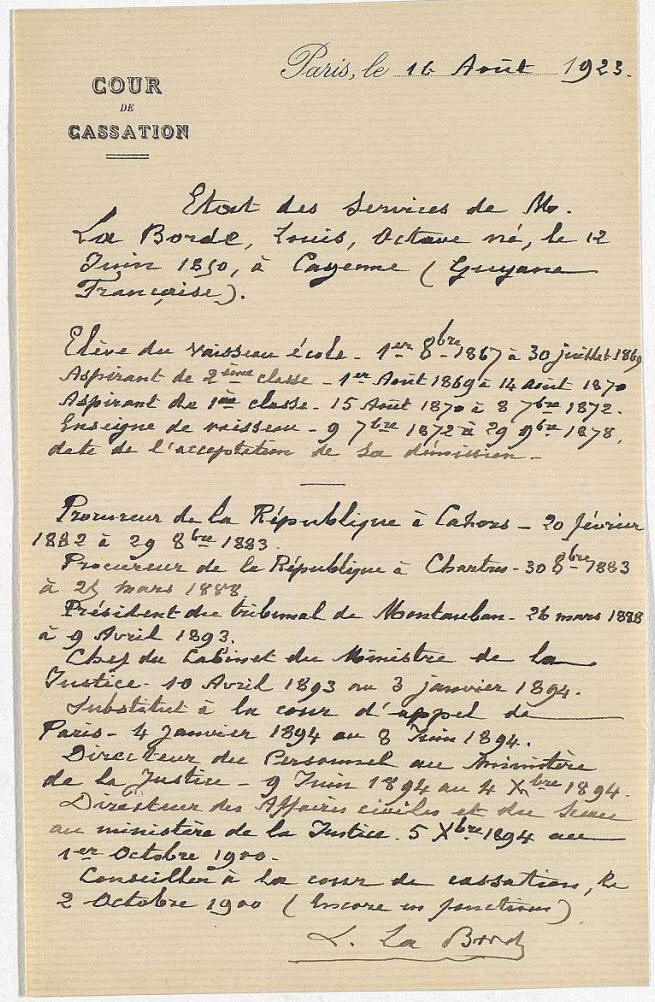 Paris, le 16 Août 1923.
COUR
DE
CASSATION
Etat des Services de M.
La Borde, Louis, Octave né, le 12
Juin 1850, à Cayenne (Guyane
Française).
Elève du vaisseau école - 1er 8bre 1867 à 30 juillet 1869
Aspirant de 2ème classe - 1er Août 1869 à 14 août 1870
Aspirant de 1ère classe - 15 Août 1870 à 8 7bre 1872.
Enseigne de vaisseau - 9 7bre 1872 à 29 9bre 1878,
date de l'acceptation de sa démission -
Procureur de la République à Cahors - 20 février
1882 à 29 8bre 1883.
Procureur de la République à Chartres - 30 8bre 1883
à 25 mars 1888
Président du tribunal de Montauban - 26 mars 1888
à 9 Avril 1893.
Chef du Cabinet du Ministre de la
Justice - 10 Avril 1893 au 3 janvier 1894.
Substitut à la cour d'appel de
Paris - 4 Janvier 1894 au 8 Juin 1894.
Directeur du Personnel au Ministère
de la Justice - 9 Juin 1894 au 4 Xbre 1894.
Directeur des Affaires civiles et du Sceau
au ministère de la Justice. 5 Xbre 1894 au
1er Octobre 1900.
Conseiller à la cour de cassation, le
2 Octobre 1900 (Encore en fonctions)
L. La Borde